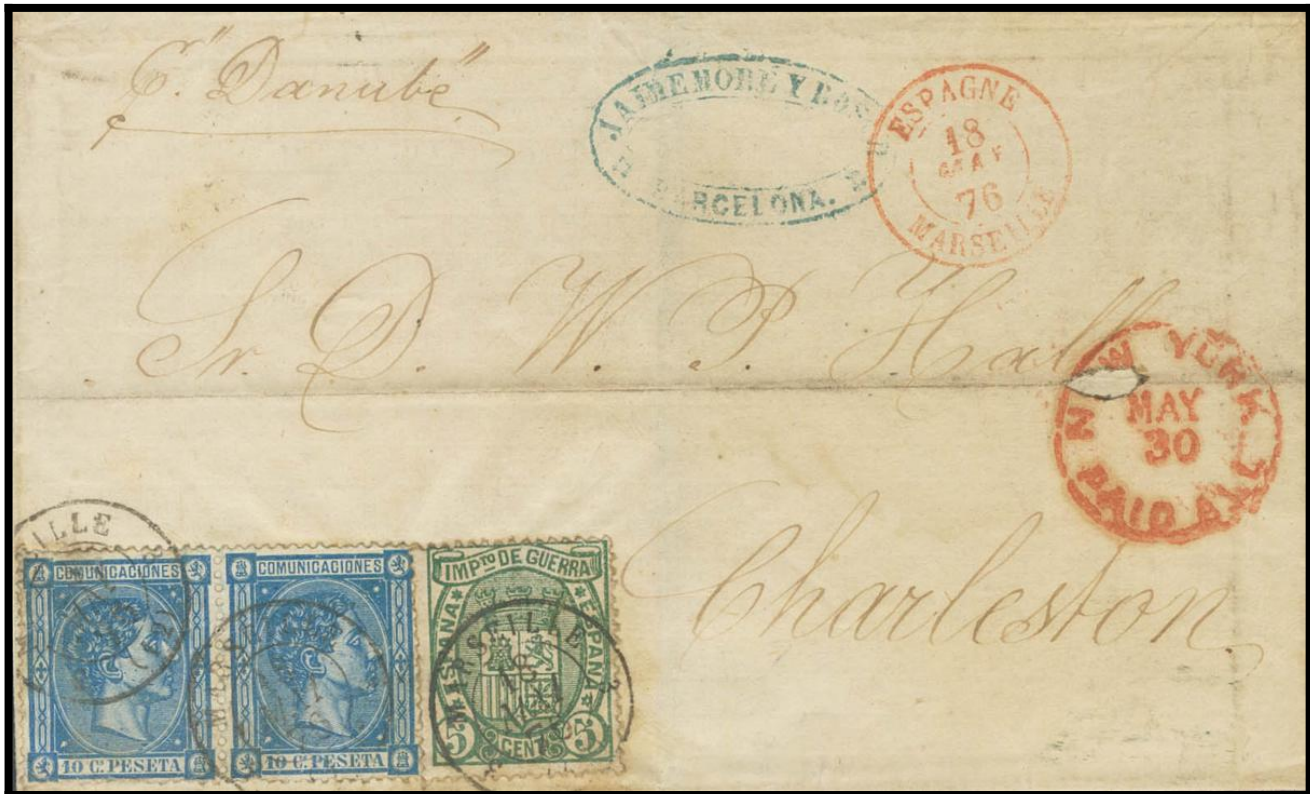 Pr. "Danube"
JAIME MORE Y BOS
BARCELONA.
ESPAGNE
18
MAI
76
MARSEILLE
Sr. D. W. P. Hall
NEW YORK
MAY
30
PAID ALL
Charleston
MARSEILLE
COMUNICACIONES
10 Cs. PESETA
MARSEILLE
COMUNICACIONES
10 Cs. PESETA
IMPTO DE GUERRA
ESPAÑA
ESPAÑA
5 CENTS 5
MARSEILLE
18
MAI
76